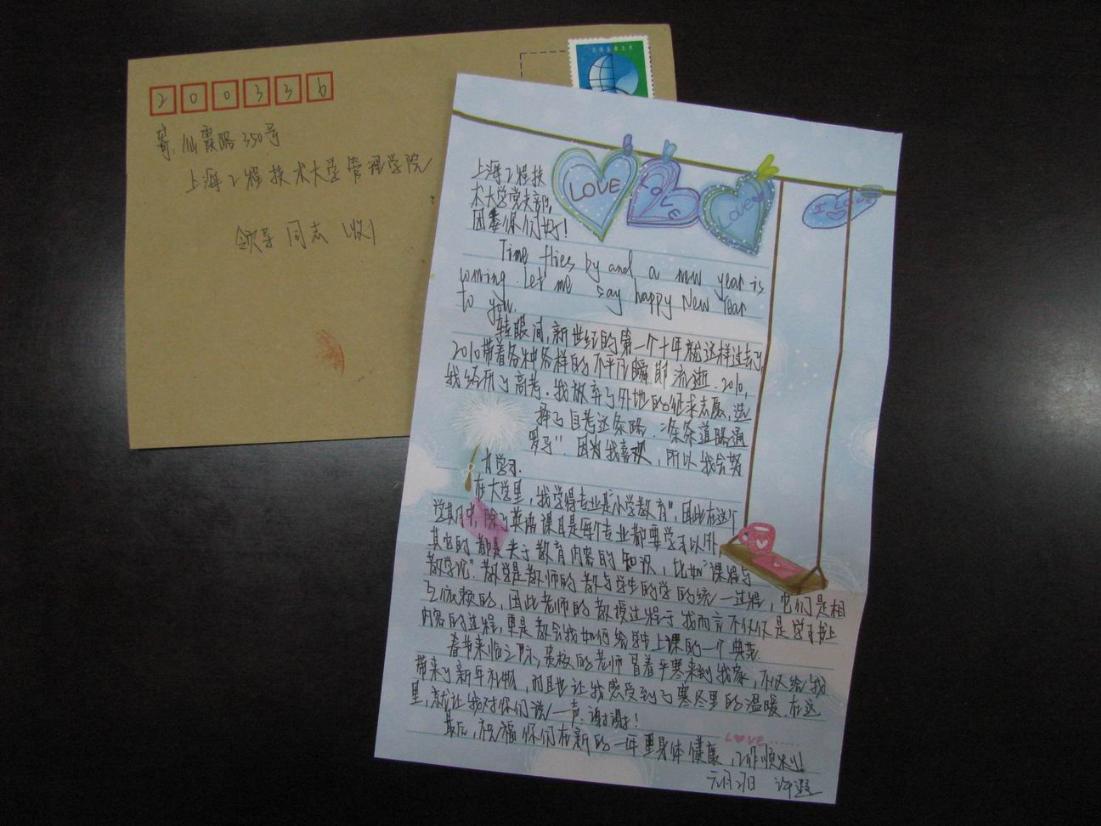 200336
寄:仙霞路350号
上海工程技术大学管理学院
领导同志(收)
LOVE
LOVE
LOVE
I LOVE
上海工程技
术大学党支部,
团委你们好!
Time flies by and a new year is
coming. Let me say happy New Year
to you.
转眼间,新世纪的第一个十年就这样过去了,
2010带着各种各样的不平凡瞬即流逝。2010,
我经历了高考。我放弃了外地的征求志愿,选
择了自考这条路。"条条道路通
罗马"。因为我喜欢,所以我会努
力学习。
在大学里,我学得专业是"小学教育"。因此在这个
学期中,除了英语课目是每个专业都要学习以外,
其它的都是关于教育内容的知识,比如"课程与
教学论"。教学是教师的教与学生的学的统一过程,它们是相
互依赖的,因此老师的教授过程于我而言不仅仅是学习书上
内容的过程,更是教会我如何给学生上课的一个典范。
春节来临之际,贵校的老师冒着严寒来到我家,不仅给我
带来了新年礼物,而且也让我感受到了寒冬里的温暖。在这
里,就让我对你们说一声:谢谢!
LOVE......
最后,祝福你们在新的一年里身体健康,工作顺利!
元月27日